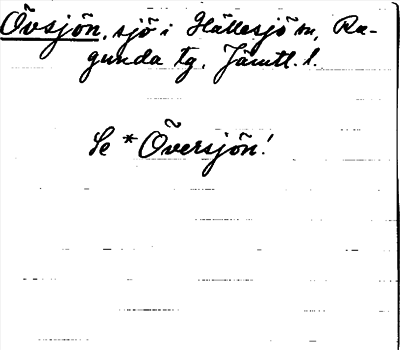 Övsjön, sjö i Hällesjö sn, Ra-
gunda tg. Jämtl. l.
Se *Översjön!